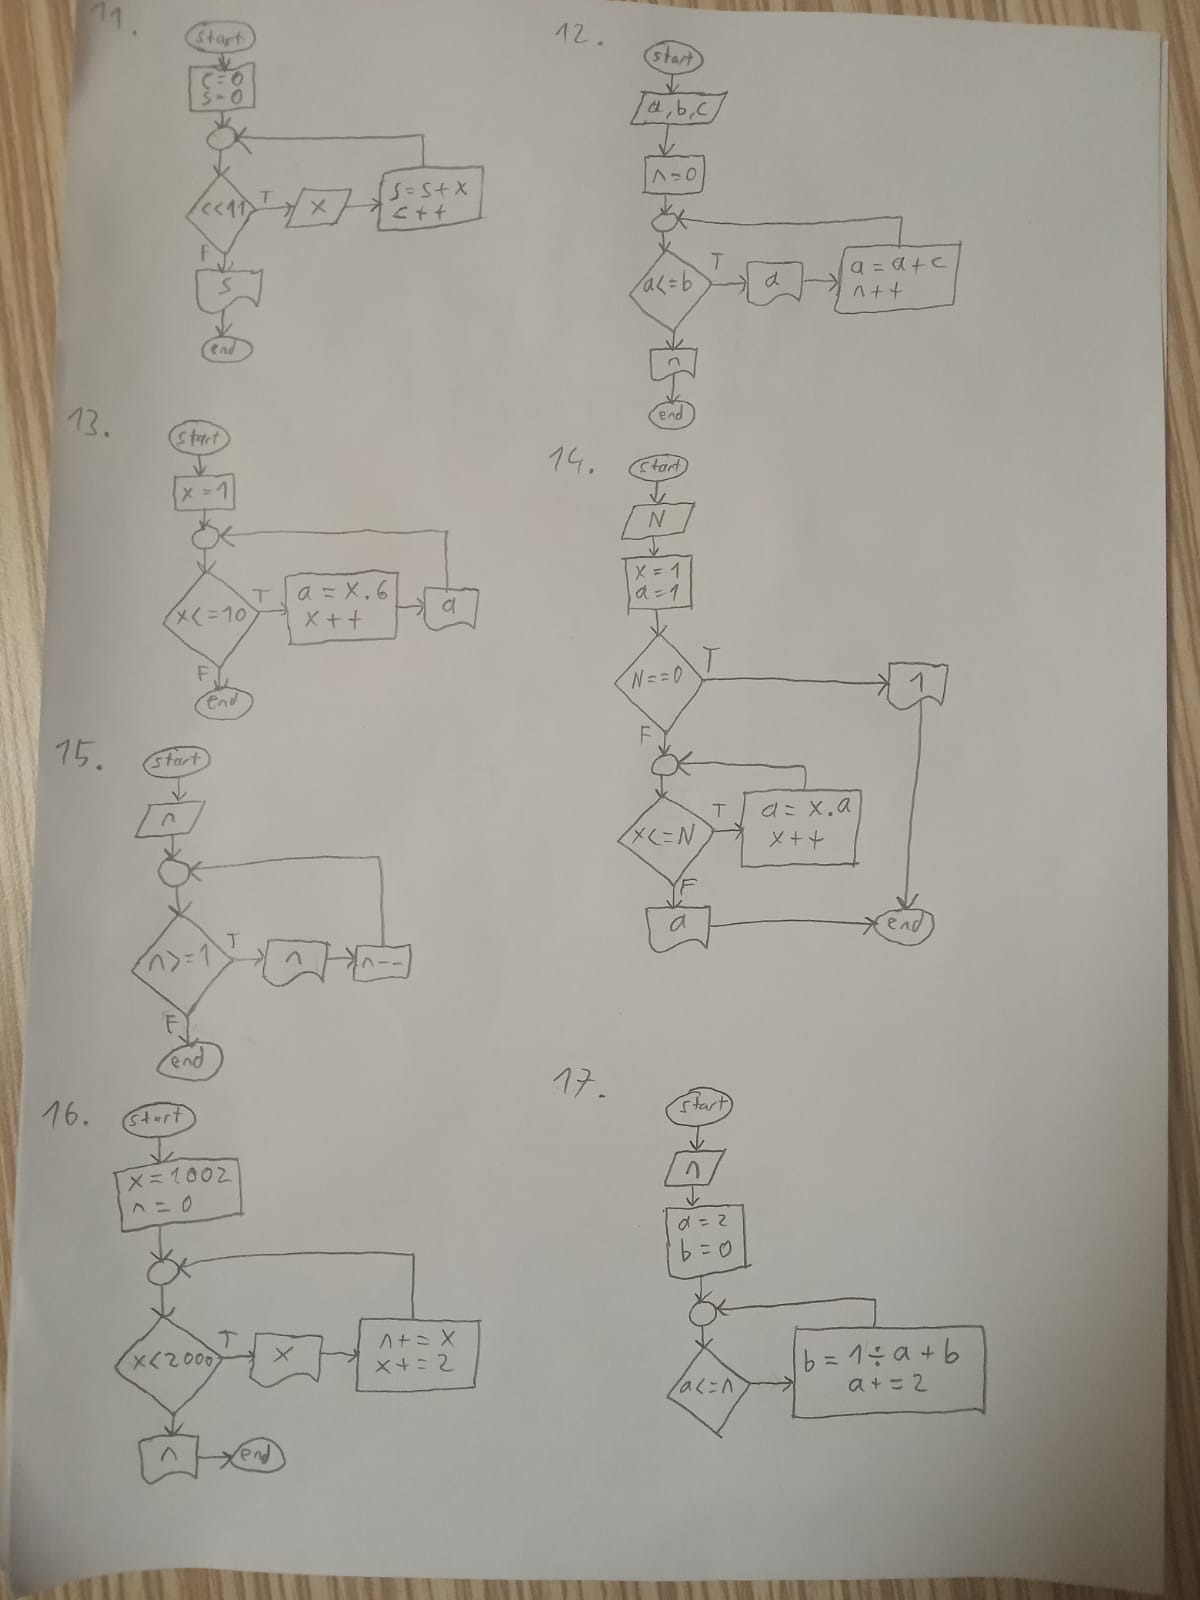 11.
start
c=0
s=0
c<11
T
x
s=s+x
c++
F
s
end
12.
start
a,b,c
n=0
a<=b
T
a
a=a+c
n++
n
end
13.
start
x=1
x<=10
T
a=x.6
x++
a
F
end
14.
start
N
x=1
a=1
N==0
T
1
F
x<=N
T
a=x.a
x++
F
a
end
15.
start
n
n>=1
T
n
n--
F
end
16.
start
x=1002
n=0
x<2000
T
x
n+=x
x+=2
n
end
17.
start
n
a=2
b=0
a<=n
b=1÷a+b
a+=2